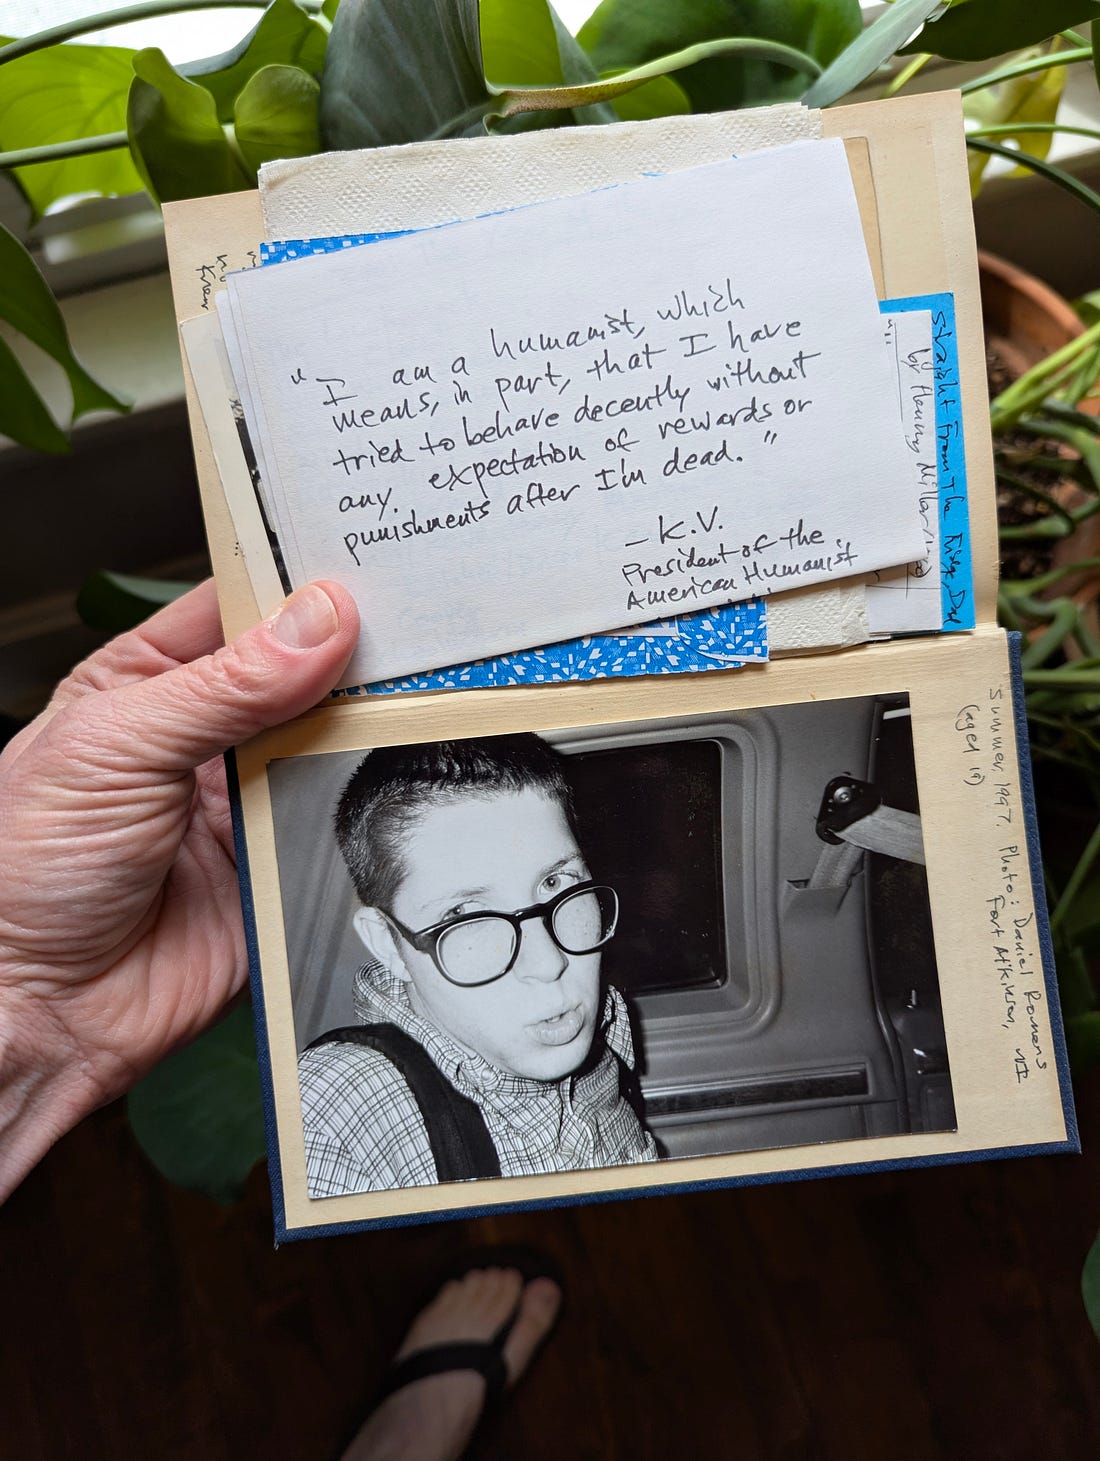 "I am a humanist, which
means, in part, that I have
tried to behave decently without
any expectation of rewards or
punishments after I'm dead."
— K.V.
President of the
American Humanist
Straight From The Fridge, Dad
by Henry Miller
Summer, 1997. Photo: Daniel Romans
(aged 19)
Fort Atkinson, WI